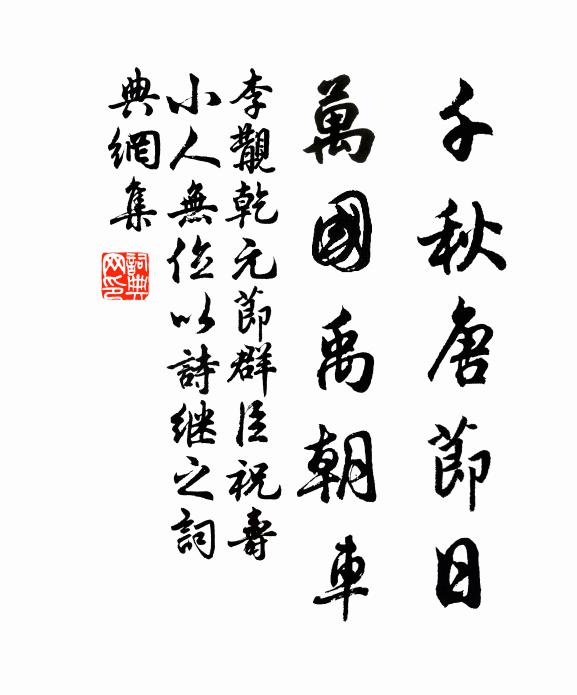 千秋唐節日
萬國禹朝車
李覯乾元節群臣祝壽
小人無位以詩继之詞
典網集
詞典网印